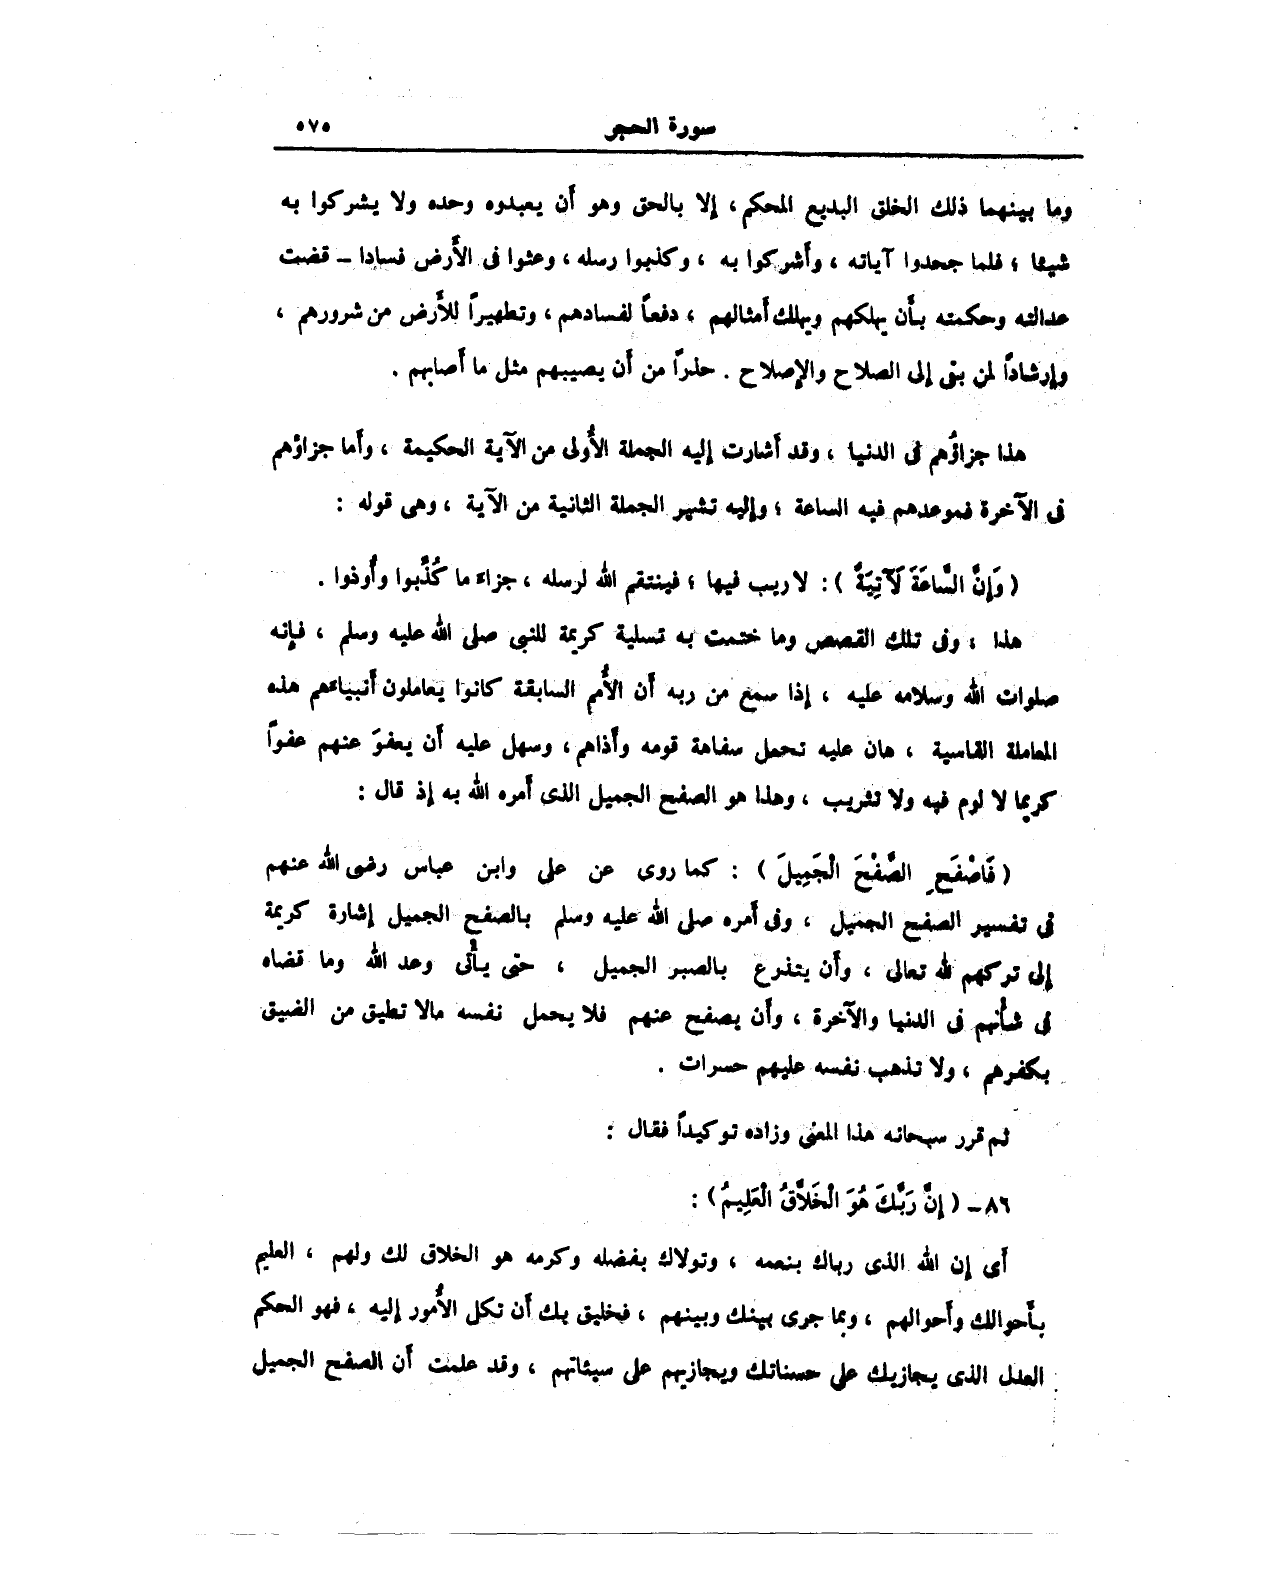 سورة الحجر ٥٧٥
وما بينهما ذلك الخلق البديع المحكم، إلا بالحق وهو أن يعبدوه وحده ولا يشركوا به
شيئا ؛ فلما جحدوا آياته ، وأشركوا به ، وكذبوا رسله ، وعثوا فى الأرض فسادا – قضت
عدالته وحكمته بأن يهلكهم ويهلك أمثالهم ، دفعاً لفسادهم ، وتطهيراً للأرض من شرورهم ،
وإرشاداً لمن بقى إلى الصلاح والإصلاح . حذراً من أن يصيبهم مثل ما أصابهم .
هذا جزاؤُهم فى الدنيا ، وقد أشارت إليه الجملة الأُولى من الآية الحكيمة ، وأما جزاؤهم
فى الآخرة فموعدهم فيه الساعة ؛ وإليه تشير الجملة الثانية من الآية ، وهى قوله :
( وَإِنَّ السَّاعَةَ لَآتِيَةٌ ) : لا ريب فيها ؛ فينتقم الله لرسله ، جزاءَ ما كُذِّبوا وأُوذوا .
هذا ، وفى تلك القصص وما ختمت به تسلية كريمة للنبى صلى الله عليه وسلم ، فإنه
صلوات الله وسلامه عليه ، إذا سمع من ربه أن الأُمم السابقة كانوا يعاملون أنبياءَهم هذه
المعاملة القاسية ، هان عليه تحمل سفاهة قومه وأذاهم، وسهل عليه أن يعفوَ عنهم عفواً
كريما لا لوم فيه ولا تثريب ، وهذا هو الصفح الجميل الذى أمره الله به إذ قال :
( فَاصْفَحِ الصَّفْحَ الْجَمِيلَ ) : كما روى عن على وابن عباس رضى الله عنهم
فى تفسير الصفح الجميل ، وفى أمره صلى الله عليه وسلم بالصفح الجميل إشارة كريمة
إلى تركهم لله تعالى ، وأن يتذرع بالصبر الجميل ، حتى يأْتى وعد الله وما قضاه
فى شأْنهم فى الدنيا والآخرة ، وأن يصفح عنهم فلا يحمل نفسه مالا تطيق من الضيق
بكفرهم ، ولا تذهب نفسه عليهم حسرات .
ثم قرر سبحانه هذا المعنى وزاده توكيداً فقال :
٨٦ – ( إِنَّ رَبَّكَ هُوَ الْخَلَّاقُ الْعَلِيمُ ) :
أى إن الله الذى رباك بنعمه ، وتولاك بفضله وكرمه هو الخلاق لك ولهم ، العليم
بأحوالك وأحوالهم ، وبما جرى بينك وبينهم ، فخليق بك أن تكل الأُمور إليه ، فهو الحكم
العدل الذى يجازيك على حسناتك ويجازيهم على سيئاتهم ، وقد علمت أن الصفح الجميل